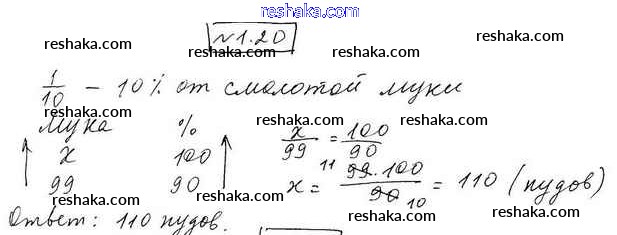 www.reshaka.com
№1.20
reshaka.com reshaka.com reshaka.com reshaka.com
1/10 - 10% от смолотой муки
reshaka.com reshaka.com reshaka.com
мука % x/99 = 100/90
x 100 11
99 90 x = 99·100/90 = 110 (пудов)
10
reshaka.com reshaka.com reshaka.com
Ответ: 110 пудов.
reshaka.com reshaka.com reshaka.com